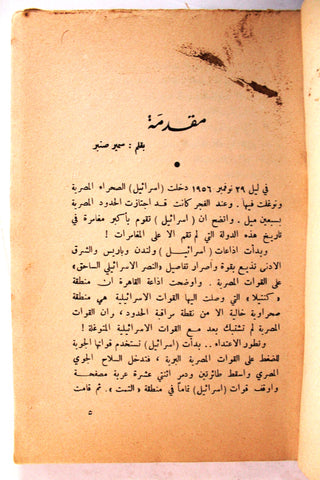 مقدمة
بقلم : سمير صنبر
في ليل ٢٩ نوفمبر ١٩٥٦ دخلت (اسرائيل) الصحراء المصرية
وتوغلت فيها . وعند الفجر كانت قد اجتازت الحدود المصرية
بسبعين ميل . واتضح ان (اسرائيل) تقوم بأكبر مغامرة في
تاريخ هذه الدولة التي لم تقم الا على المغامرات !
وبدأت اذاعات (اسرائيل) ولندن وباريس والشرق
الادنى تذيع بقوة وأصرار تفاصيل «النصر الاسرائيلي الساحق»
على القوات المصرية . واوضحت اذاعة القاهرة أن منطقة
«كنتيلا» التي وصلت اليها القوات الاسرائيلية هي منطقة
صحراوية خالية الا من نقطة مراقبة الحدود ، وان القوات
المصرية لم تشتبك بعد مع القوات الاسرائيلية المتوغلة !
وتطور الاعتداء.. بدأت (اسرائيل) تستخدم قواتها الجوية
للضغط على القوات المصرية البرية ، فتدخل السلاح الجوي
المصري واسقط طائرتين ودمر اثنتي عشرة عربة مصفحة
واوقف قوات (اسرائيل) تماماً في منطقة «التمت». ثم قامت
٥